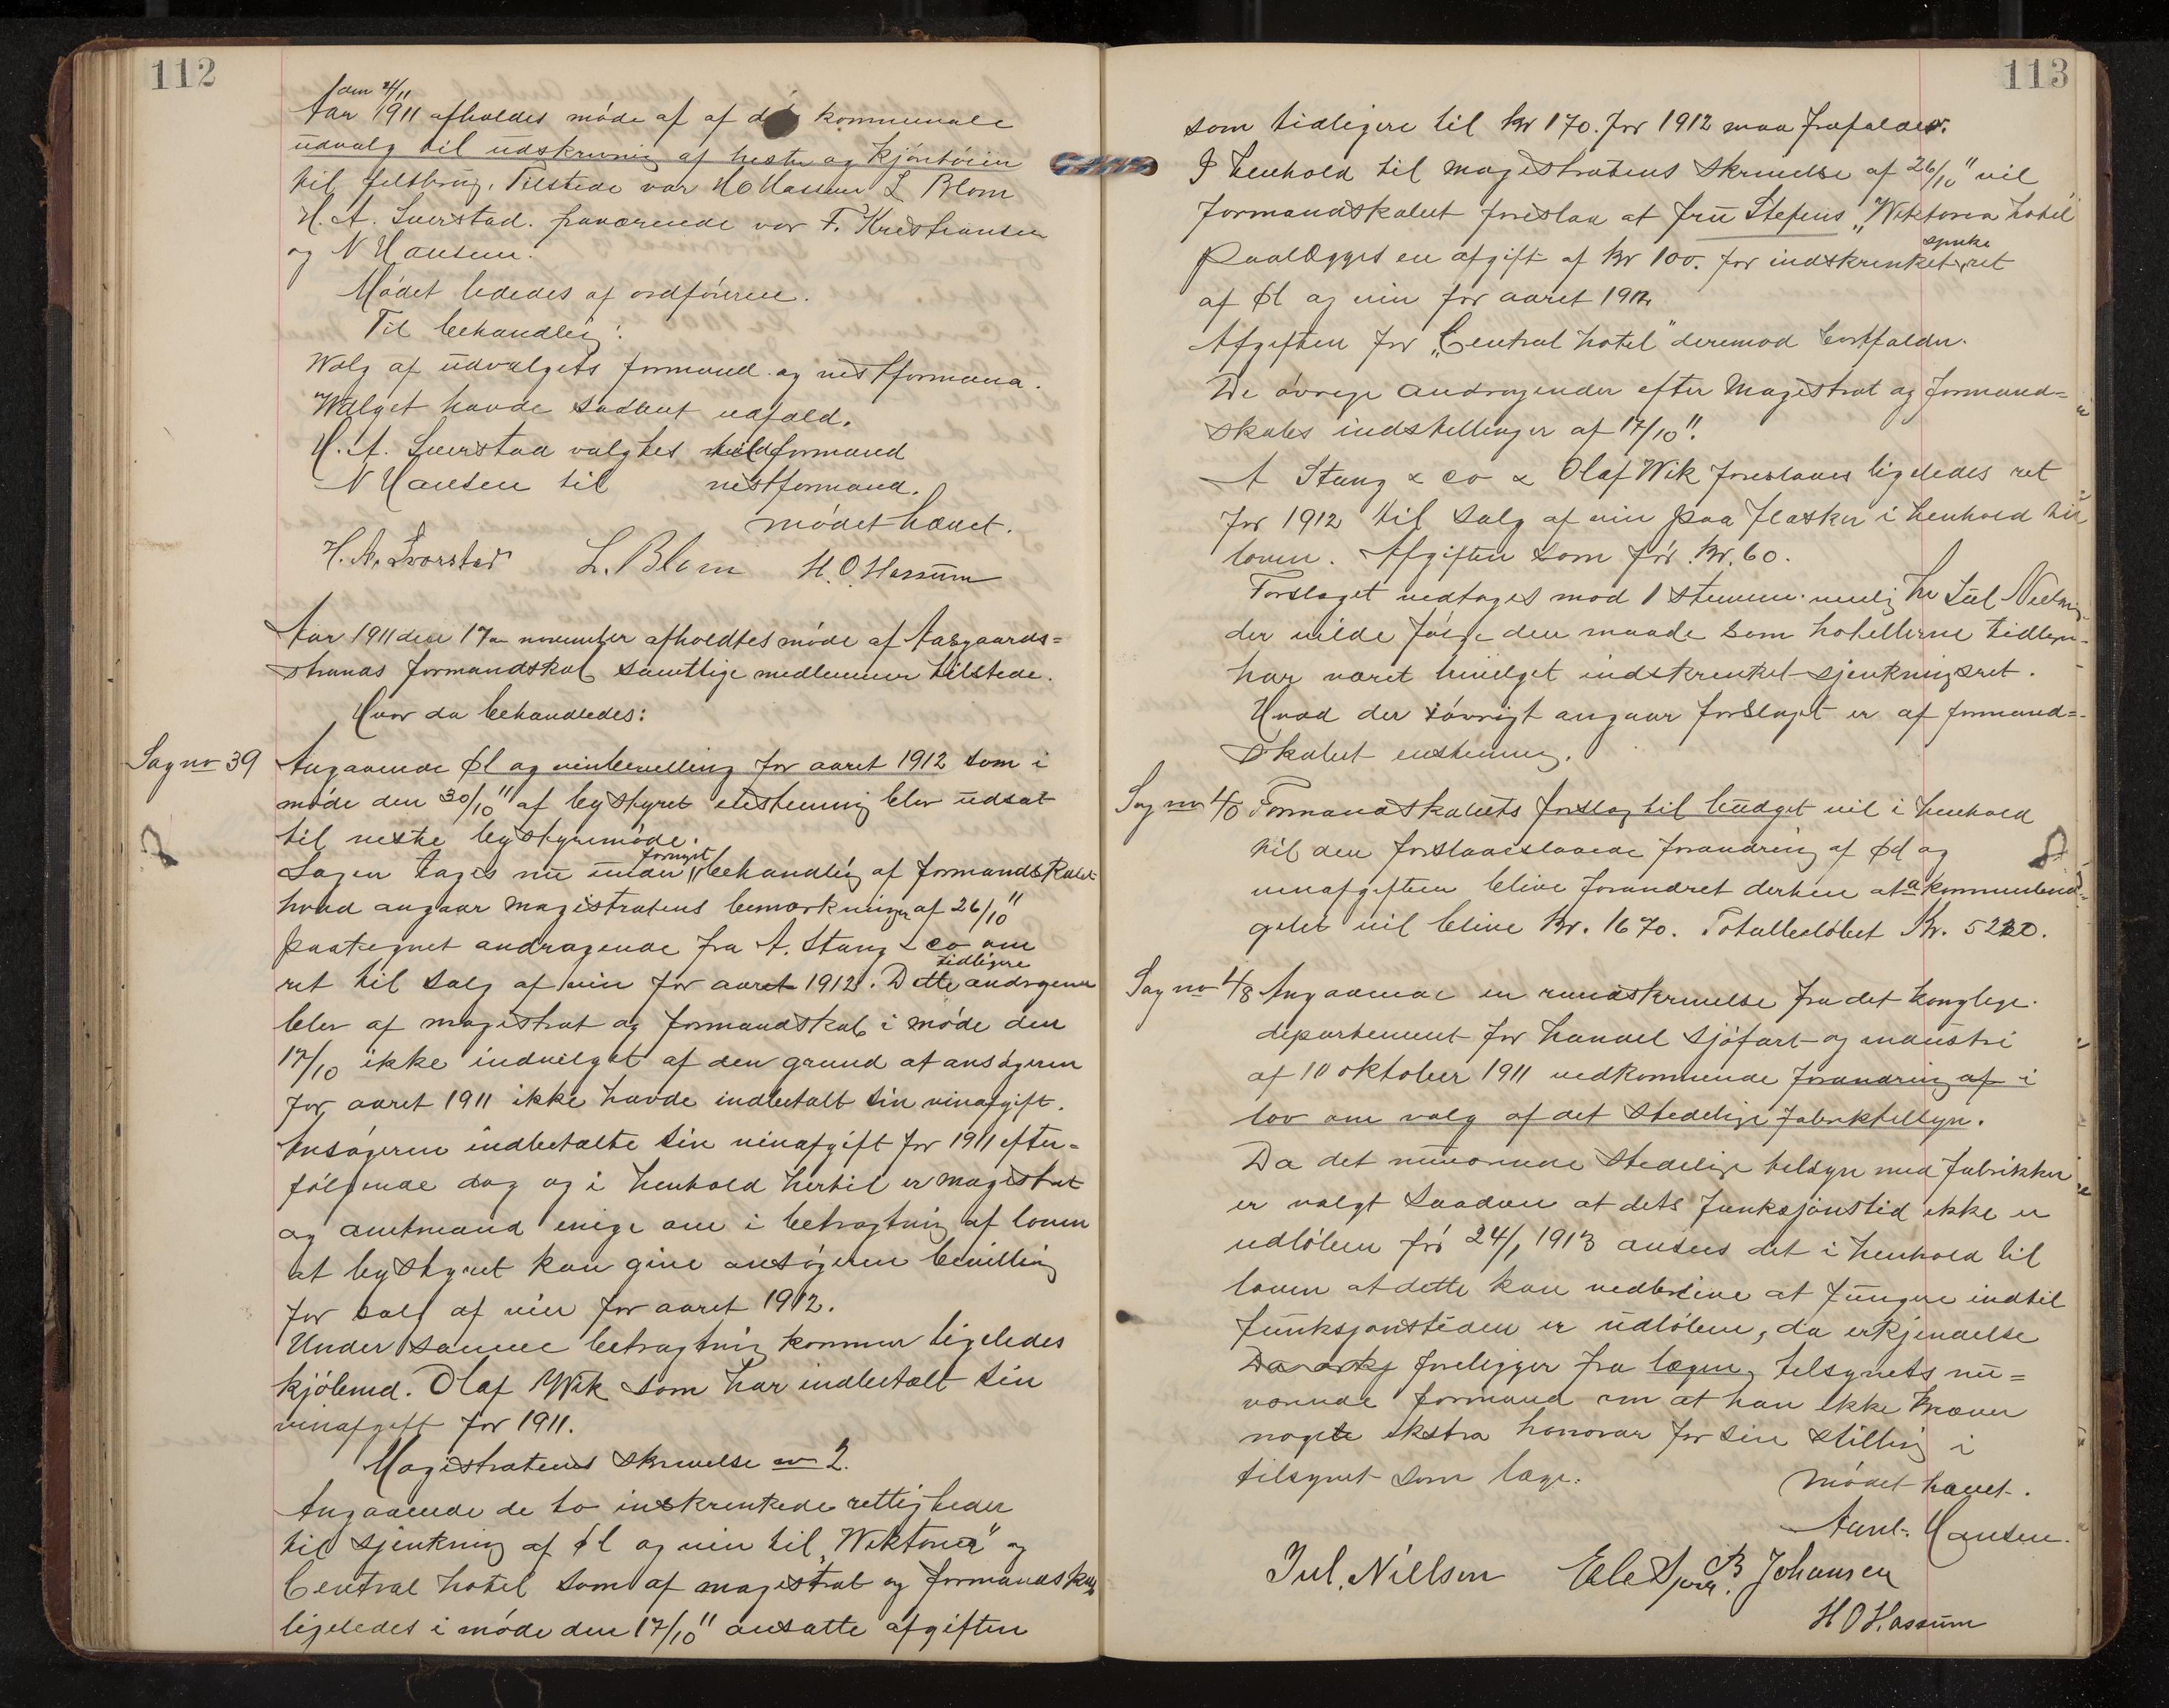 112
den 4/11
Aar 1911 afholdes møde af af de kommunale
udvalg til udskrivning af heste og kjøretøier
til feltbrug. Tilstede var H O Hassum L Blom
H. A. Sverstad. fraværende var F. Kristiansen
og N Hansen.
Mødet lededes af ordføreren.
Til behandling:
Walg af udvalgets formand og nestformand.
Walget havde saadant udfald.
H. A. Sverstad valgtes til formand
N Hansen til nestformand.
mødet hævet.
H. A. Sverstad L. Blom H. O. Hassum
Aar 1911 den 17de november afholdtes møde af Aasgaards=
strands formandskab samtlige medlemmer tilstede.
Hvor da behandledes:
Sag no 39 Angaaende øl og vinbevilling for aaret 1912 som i
møde den 30/10 11 af bystyret enstemmig blev udsat
til neste bystyremøde.
Sagen tages nu under fornyet behandling af formandskabet
hvad angaar magistratens bemerkninger af 26/10 11
paategnet andragende fra A. Stang & co om
ret til salg af vin for aaret 1912. Dette tidligere andragende
blev af magistrat og formandskab i møde den
17/10 ikke indvilget af den grund at ansøgeren
for aaret 1911 ikke havde indbetalt sin vinafgift.
Ansøgeren indbetalte sin vinafgift for 1911 efter=
følgende dag og i henhold hertil er magistrat
og amtmand enige om i betragtning af loven
at bystyret kan give ansøgeren bevilling
for salg af vin for aaret 1912.
Under samme betragtning kommer ligeledes
kjøbmd. Olaf Wik som har indbetalt sin
vinafgift for 1911.
Magistratens skrivelse no 2.
Angaaende de to inskrenkede rettigheder
til sjenkning af øl og vin til "Wiktoria" og
Central hotel som af magistrat og formandskab
ligeledes i møde den 17/10 11 ansatte afgiften
113
som tidligere til kr 170. for 1912 maa frafaldes.
I henhold til magistratens skrivelse af 26/10 11 vil
formandskabet foreslaa at fru Stefens "Wiktoria hotel"
paalægges en afgift af kr 100. for indskrenket sjenke ret
af øl og vin for aaret 1912
Afgiften for "Central hotel" derimod bortfalder.
De øvrige andragender efter Magistrat og formand=
skabs indstillinger af 17/10 11.
A Stang & co & Olaf Wik foreslaaes ligeledes ret
for 1912 til salg af vin paa flasker i henhold til
loven. Afgiften som før. Kr. 60.
Forslaget vedtages mod 1 stemme nemlig hr Jul Nielsen
der vilde følge den maade som hotellerne tidligere
har været bevilget indskrenket sjenkningsret.
Hvad der iøvrigt angaar forslaget er af formand=
skabet enstemmig.
Sag no 40 Formandskabets forslag til budget vil i henhold
til den foreslaaede forandring af øl og
vinafgiften blive forandret derhen at a kommunebud-
gettet vil blive Kr. 1670. Totalbeløbet Kr. 5220.
Sag no 48 Angaaende en rundskrivelse fra det kongelige
departement for handel sjøfart og industri
af 10 oktober 1911 vedkommende forandring af i
lov om valg af det stedelige fabriktilsyn.
Da det nuværende stedelige tilsyn med fabrikker
er valgt saadan at dets funksjonstid ikke er
udløben før 24/1 1913 ansees det i henhold til
loven at dette kan vedblive at fungere indtil
funksjonstiden er udløben, da erkjendelse
Da erkj foreligger fra lægen, tilsynets nu=
værende formand om at han ikke kræver
noget ekstra honorar for sin stilling i
tilsynet som læge.
Mødet hævet.
Aml. Hansen.
Jul. Nielsen B Johansen
H O Hassum